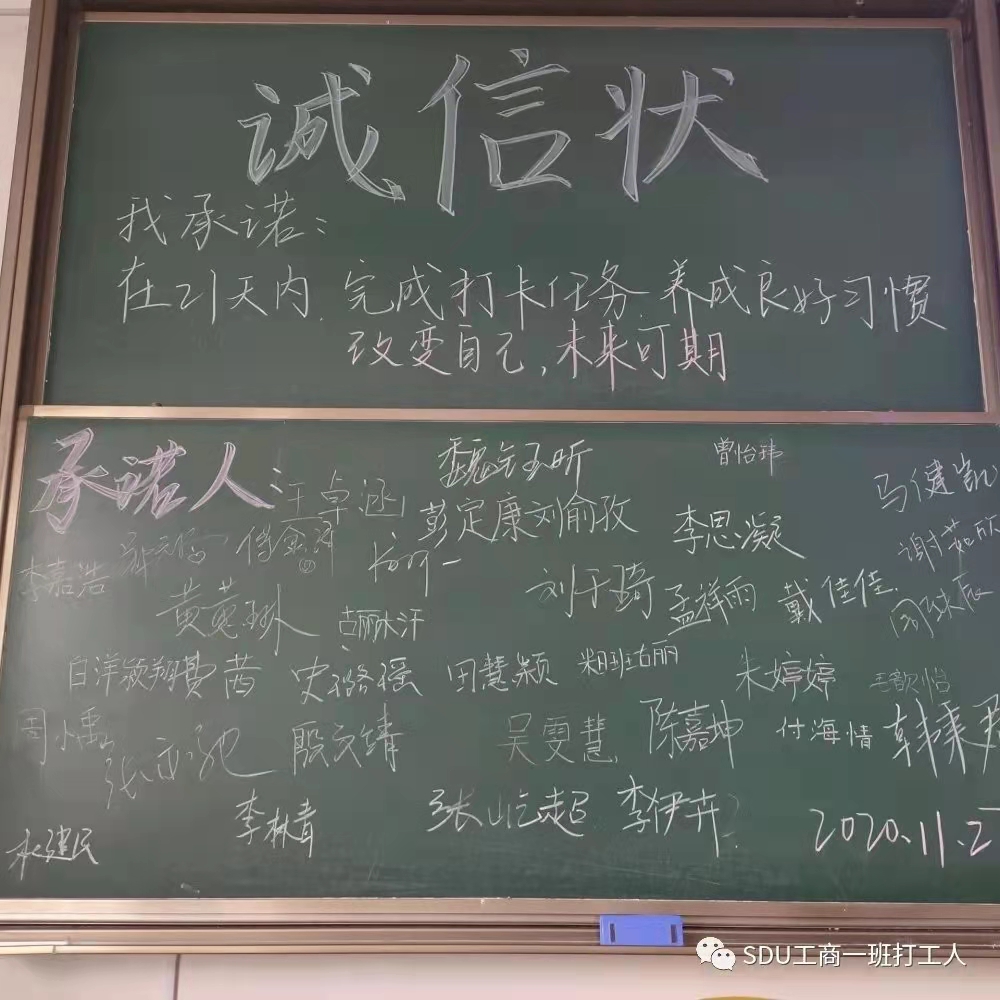 诚信状
我承诺：
在21天内.完成打卡任务.养成良好习惯
改变自己,未来可期
承诺人 汪卓涵 魏钰昕 曾怡玮 马健凯
彭定康 刘俞孜 李思凝
李嘉浩 谢茹
刘于琦 孟祥雨 戴佳佳
黄
白洋 颍翔 费茜 史璐瑶 田慧颖 朱婷婷 毛歆怡
周小禹 殷文靖 吴雯慧 陈嘉坤 付海情
张 李林青 张屹超 李伊卉 2020.11.2
SDU工商一班打工人